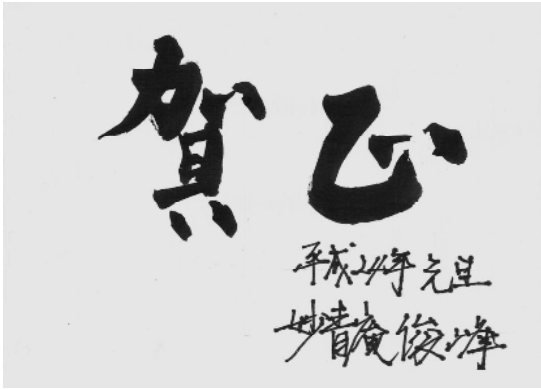 賀正
平成24年元旦
妙青庵俊峰